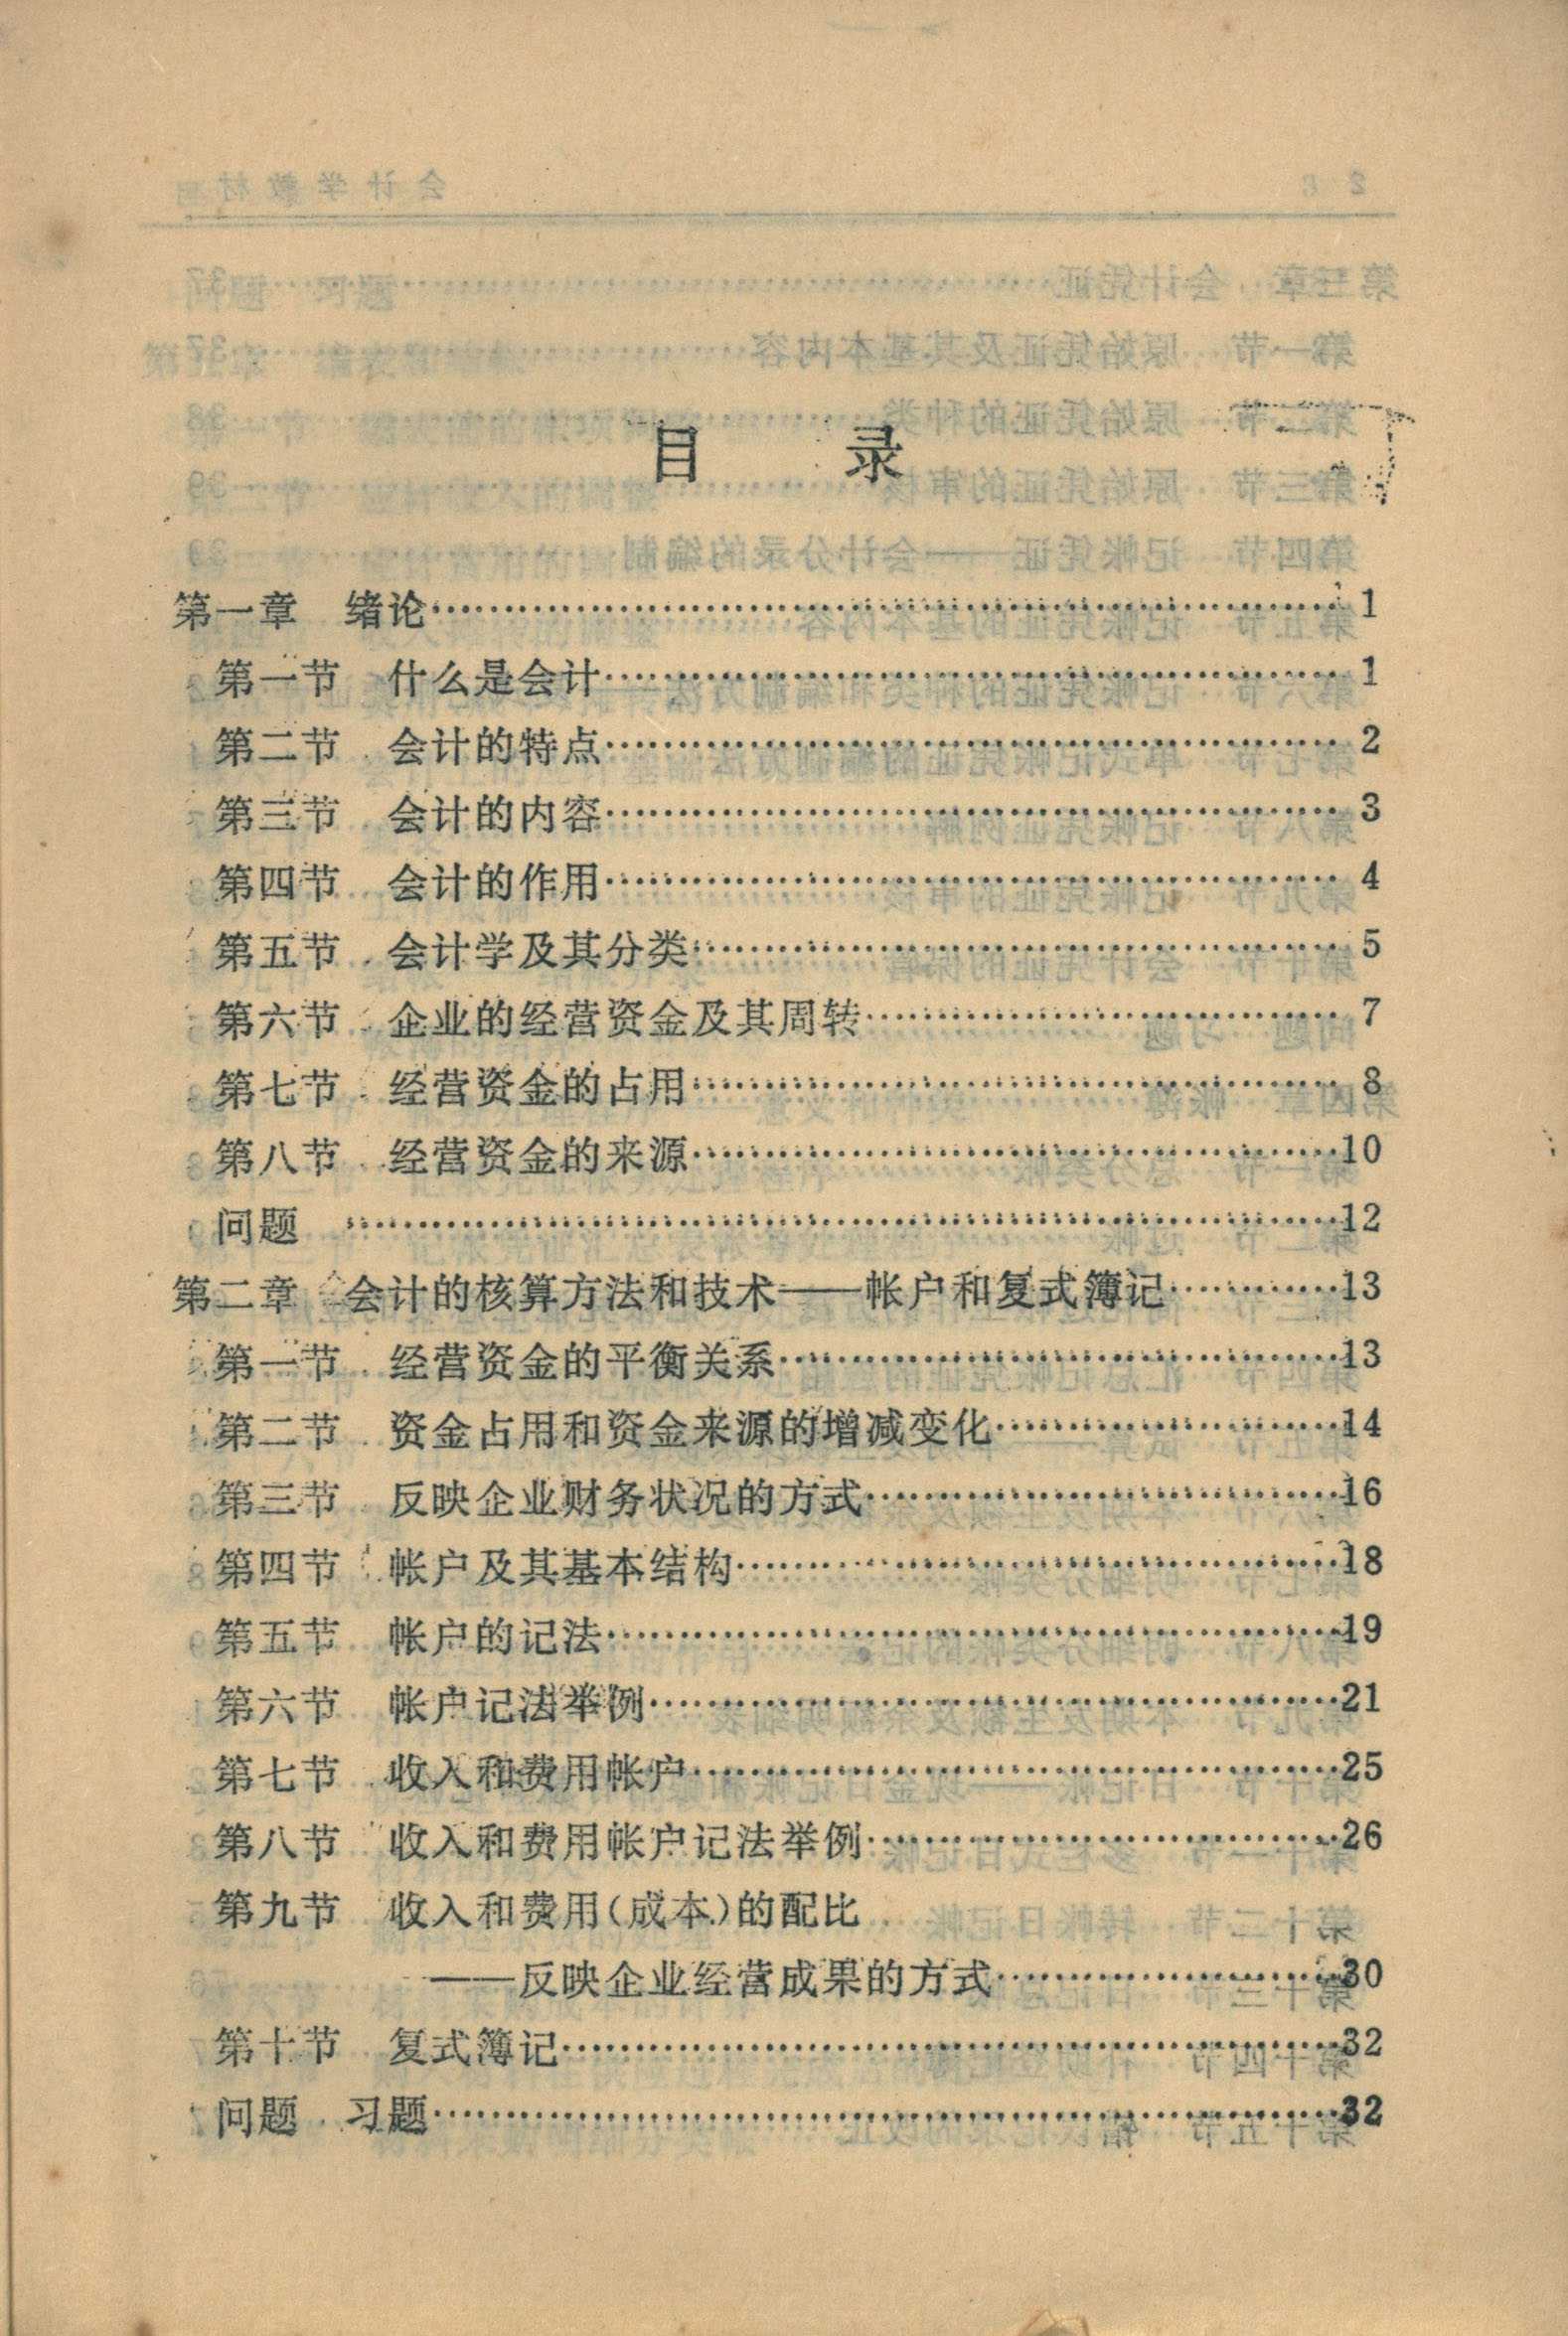 目 录
第一章 绪论…………………………………………………………1
第一节 什么是会计………………………………………………1
第二节 会计的特点………………………………………………2
第三节 会计的内容………………………………………………3
第四节 会计的作用………………………………………………4
第五节 会计学及其分类…………………………………………5
第六节 企业的经营资金及其周转………………………………7
第七节 经营资金的占用…………………………………………8
第八节 经营资金的来源…………………………………………10
问题 ………………………………………………………………12
第二章 会计的核算方法和技术——帐户和复式簿记…………13
第一节 经营资金的平衡关系……………………………………13
第二节 资金占用和资金来源的增减变化………………………14
第三节 反映企业财务状况的方式………………………………16
第四节 帐户及其基本结构………………………………………18
第五节 帐户的记法………………………………………………19
第六节 帐户记法举例……………………………………………21
第七节 收入和费用帐户…………………………………………25
第八节 收入和费用帐户记法举例………………………………26
第九节 收入和费用(成本)的配比
——反映企业经营成果的方式……………………………………30
第十节 复式簿记…………………………………………………32
问题 习题…………………………………………………………32